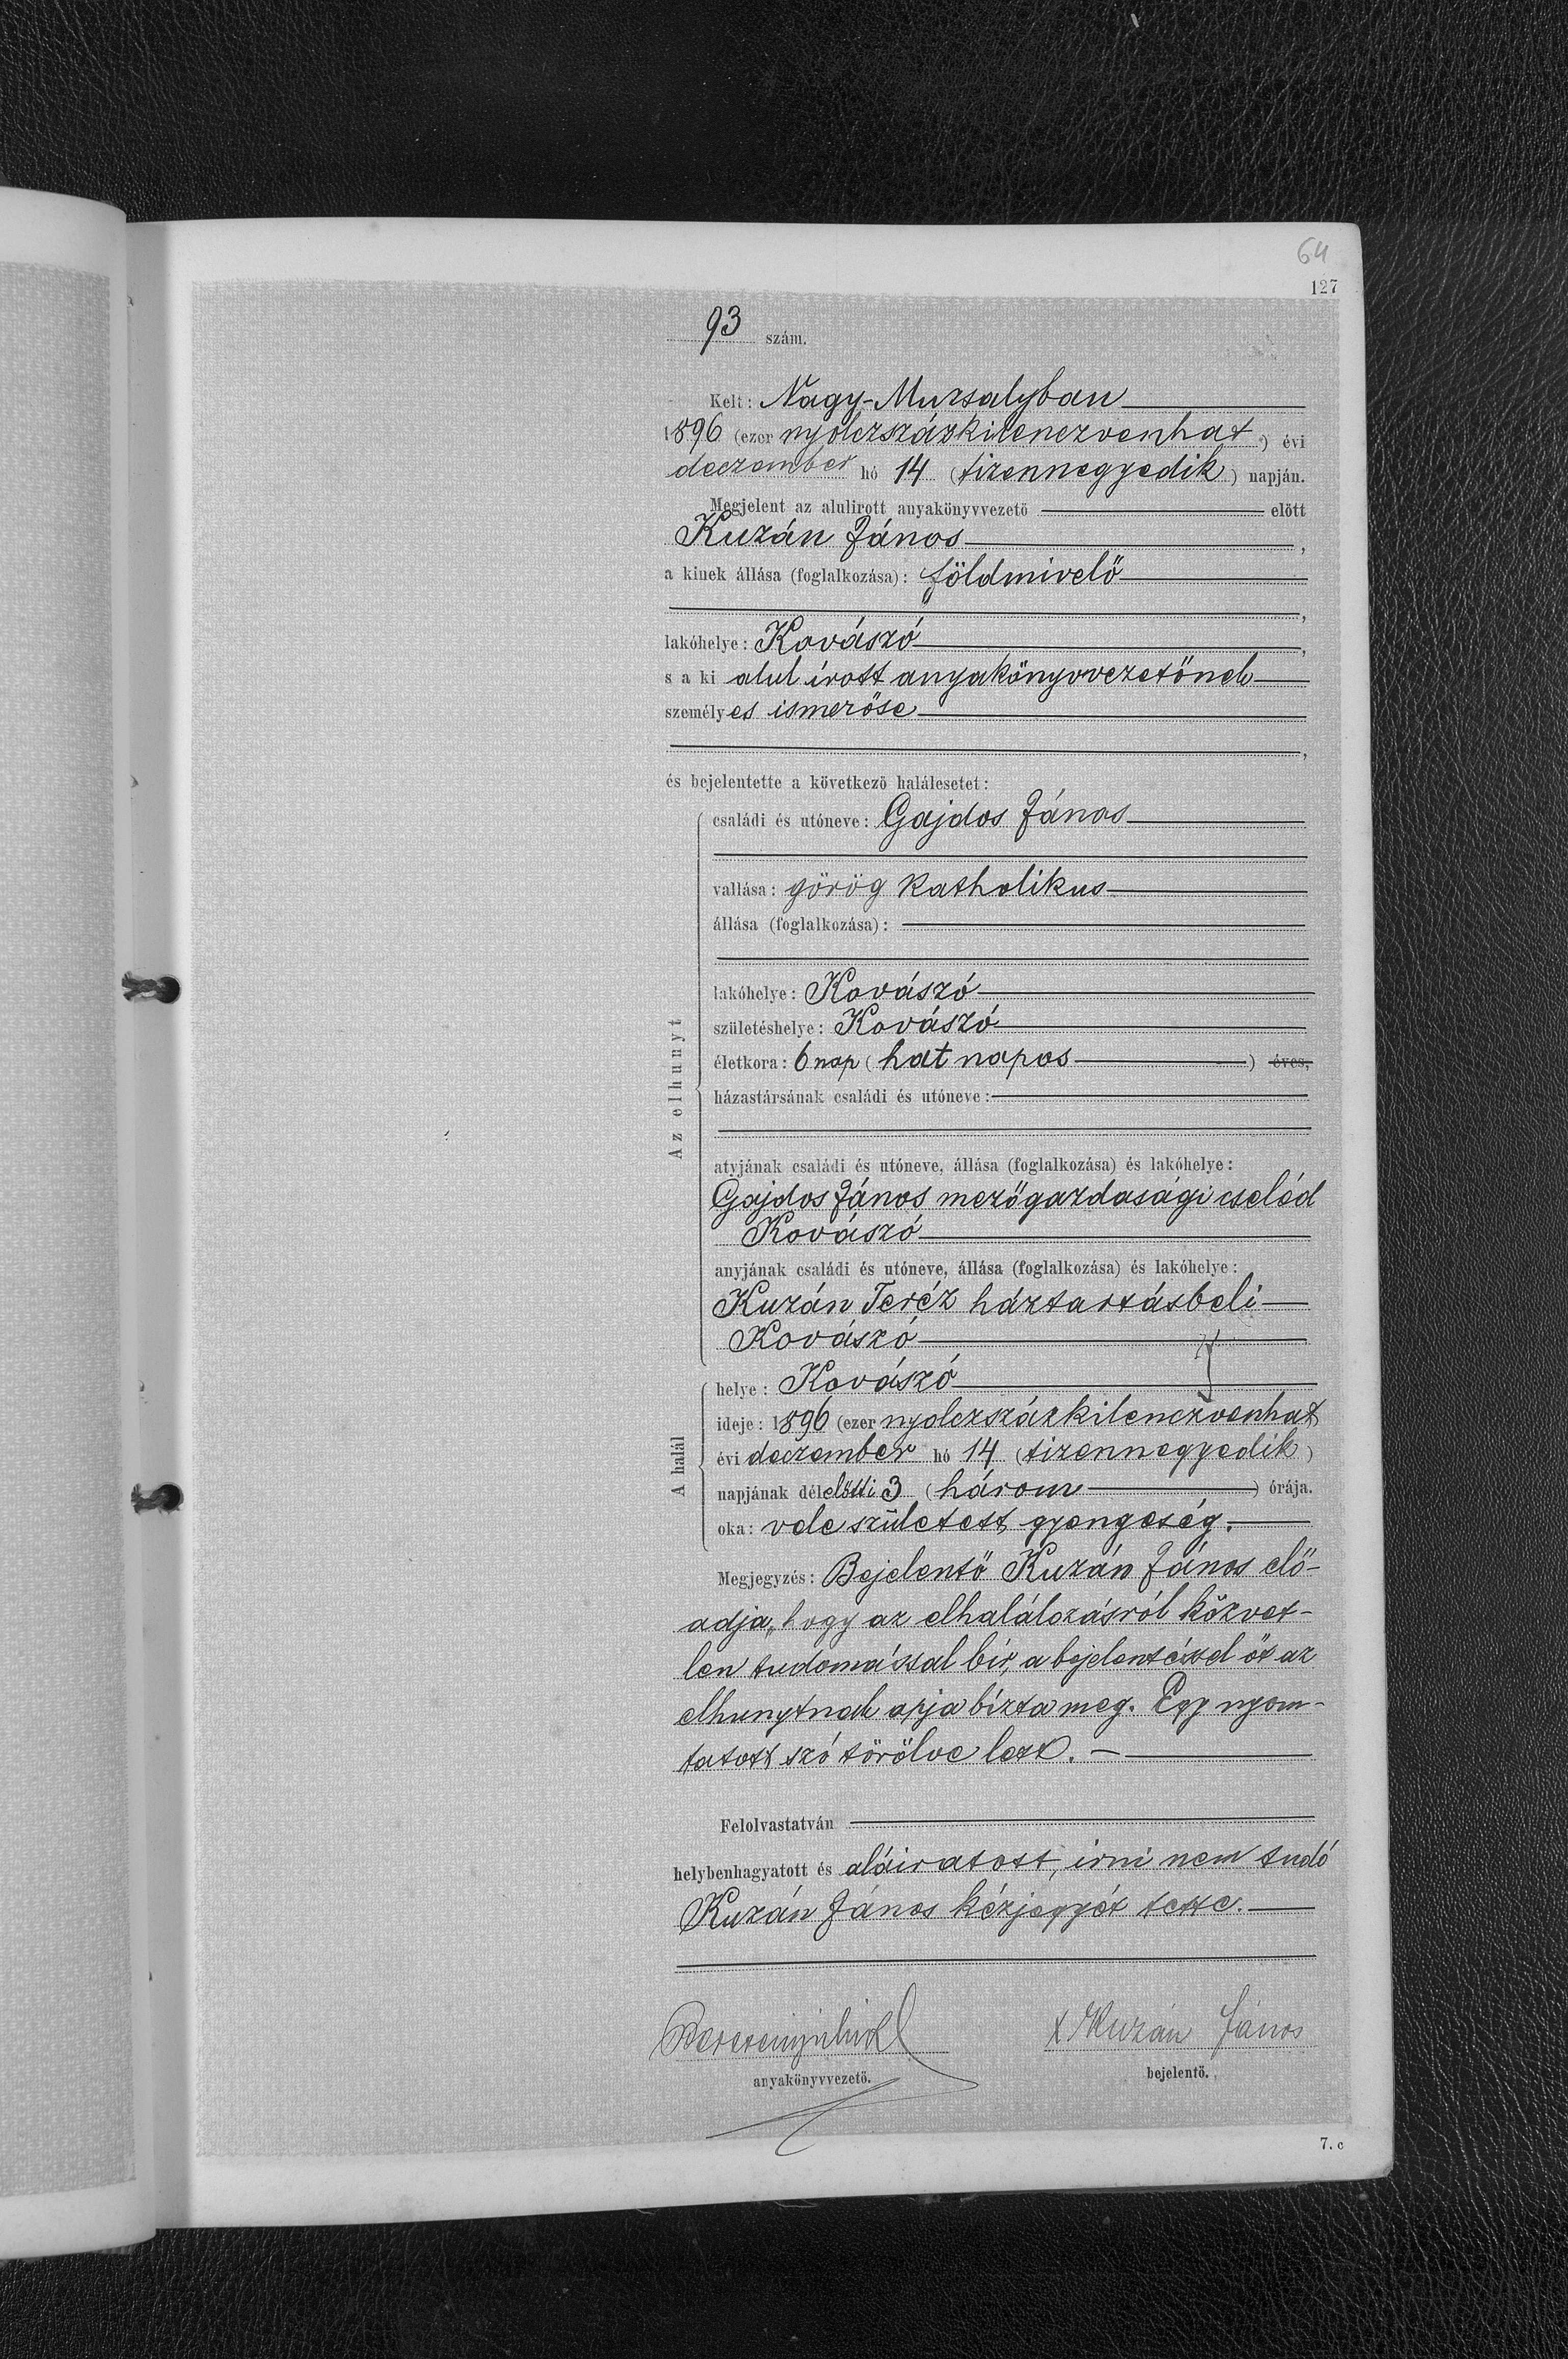 64
127
93 szám.
Kelt: Nagy-Muzsalyban
1896 (ezer nyolczszázkilenczvenhat) évi
deczember hó 14 (tizennegyedik) napján.
Megjelent az alulirott anyakönyvvezető előtt
Kuzán János,
a kinek állása (foglalkozása): földmivelő
,
lakóhelye: Kovászó,
s a ki alul írott anyakönyvvezetőnek
személyes ismerőse
,
és bejelentette a következő halálesetet:
Az elhunyt
családi és utóneve: Gajdos János
vallása: görög katholikus
állása (foglalkozása):
lakóhelye: Kovászó
születéshelye: Kovászó
életkora: 6 nap (hat napos) éves,
házastársának családi és utóneve:
atyjának családi és utóneve, állása (foglalkozása) és lakóhelye:
Gajdos János mezőgazdasági cseléd
Kovászó
anyjának családi és utóneve, állása (foglalkozása) és lakóhelye:
Kuzán Teréz háztartásbeli
Kovászó
A halál
helye: Kovászó
ideje: 1896 (ezer nyolczszázkilenczvenhat
évi deczember hó 14 (tizennegyedik)
napjának délelőtti 3 (három) órája.
oka: vele született gyengeség.
Megjegyzés: Bejelentő Kuzán János elő-
adja, hogy az elhalálozásról közvet-
len tudomással bír, a bejelentéssel őt az
elhunytnak apja bízta meg. Egy nyom-
tatott szó törölve lett. —
Felolvastatván
helybenhagyatott és aláiratott, irni nem tudó
Kuzán János kézjegyét tette.
x Kuzán János
anyakönyvvezető.
bejelentő.
7. c